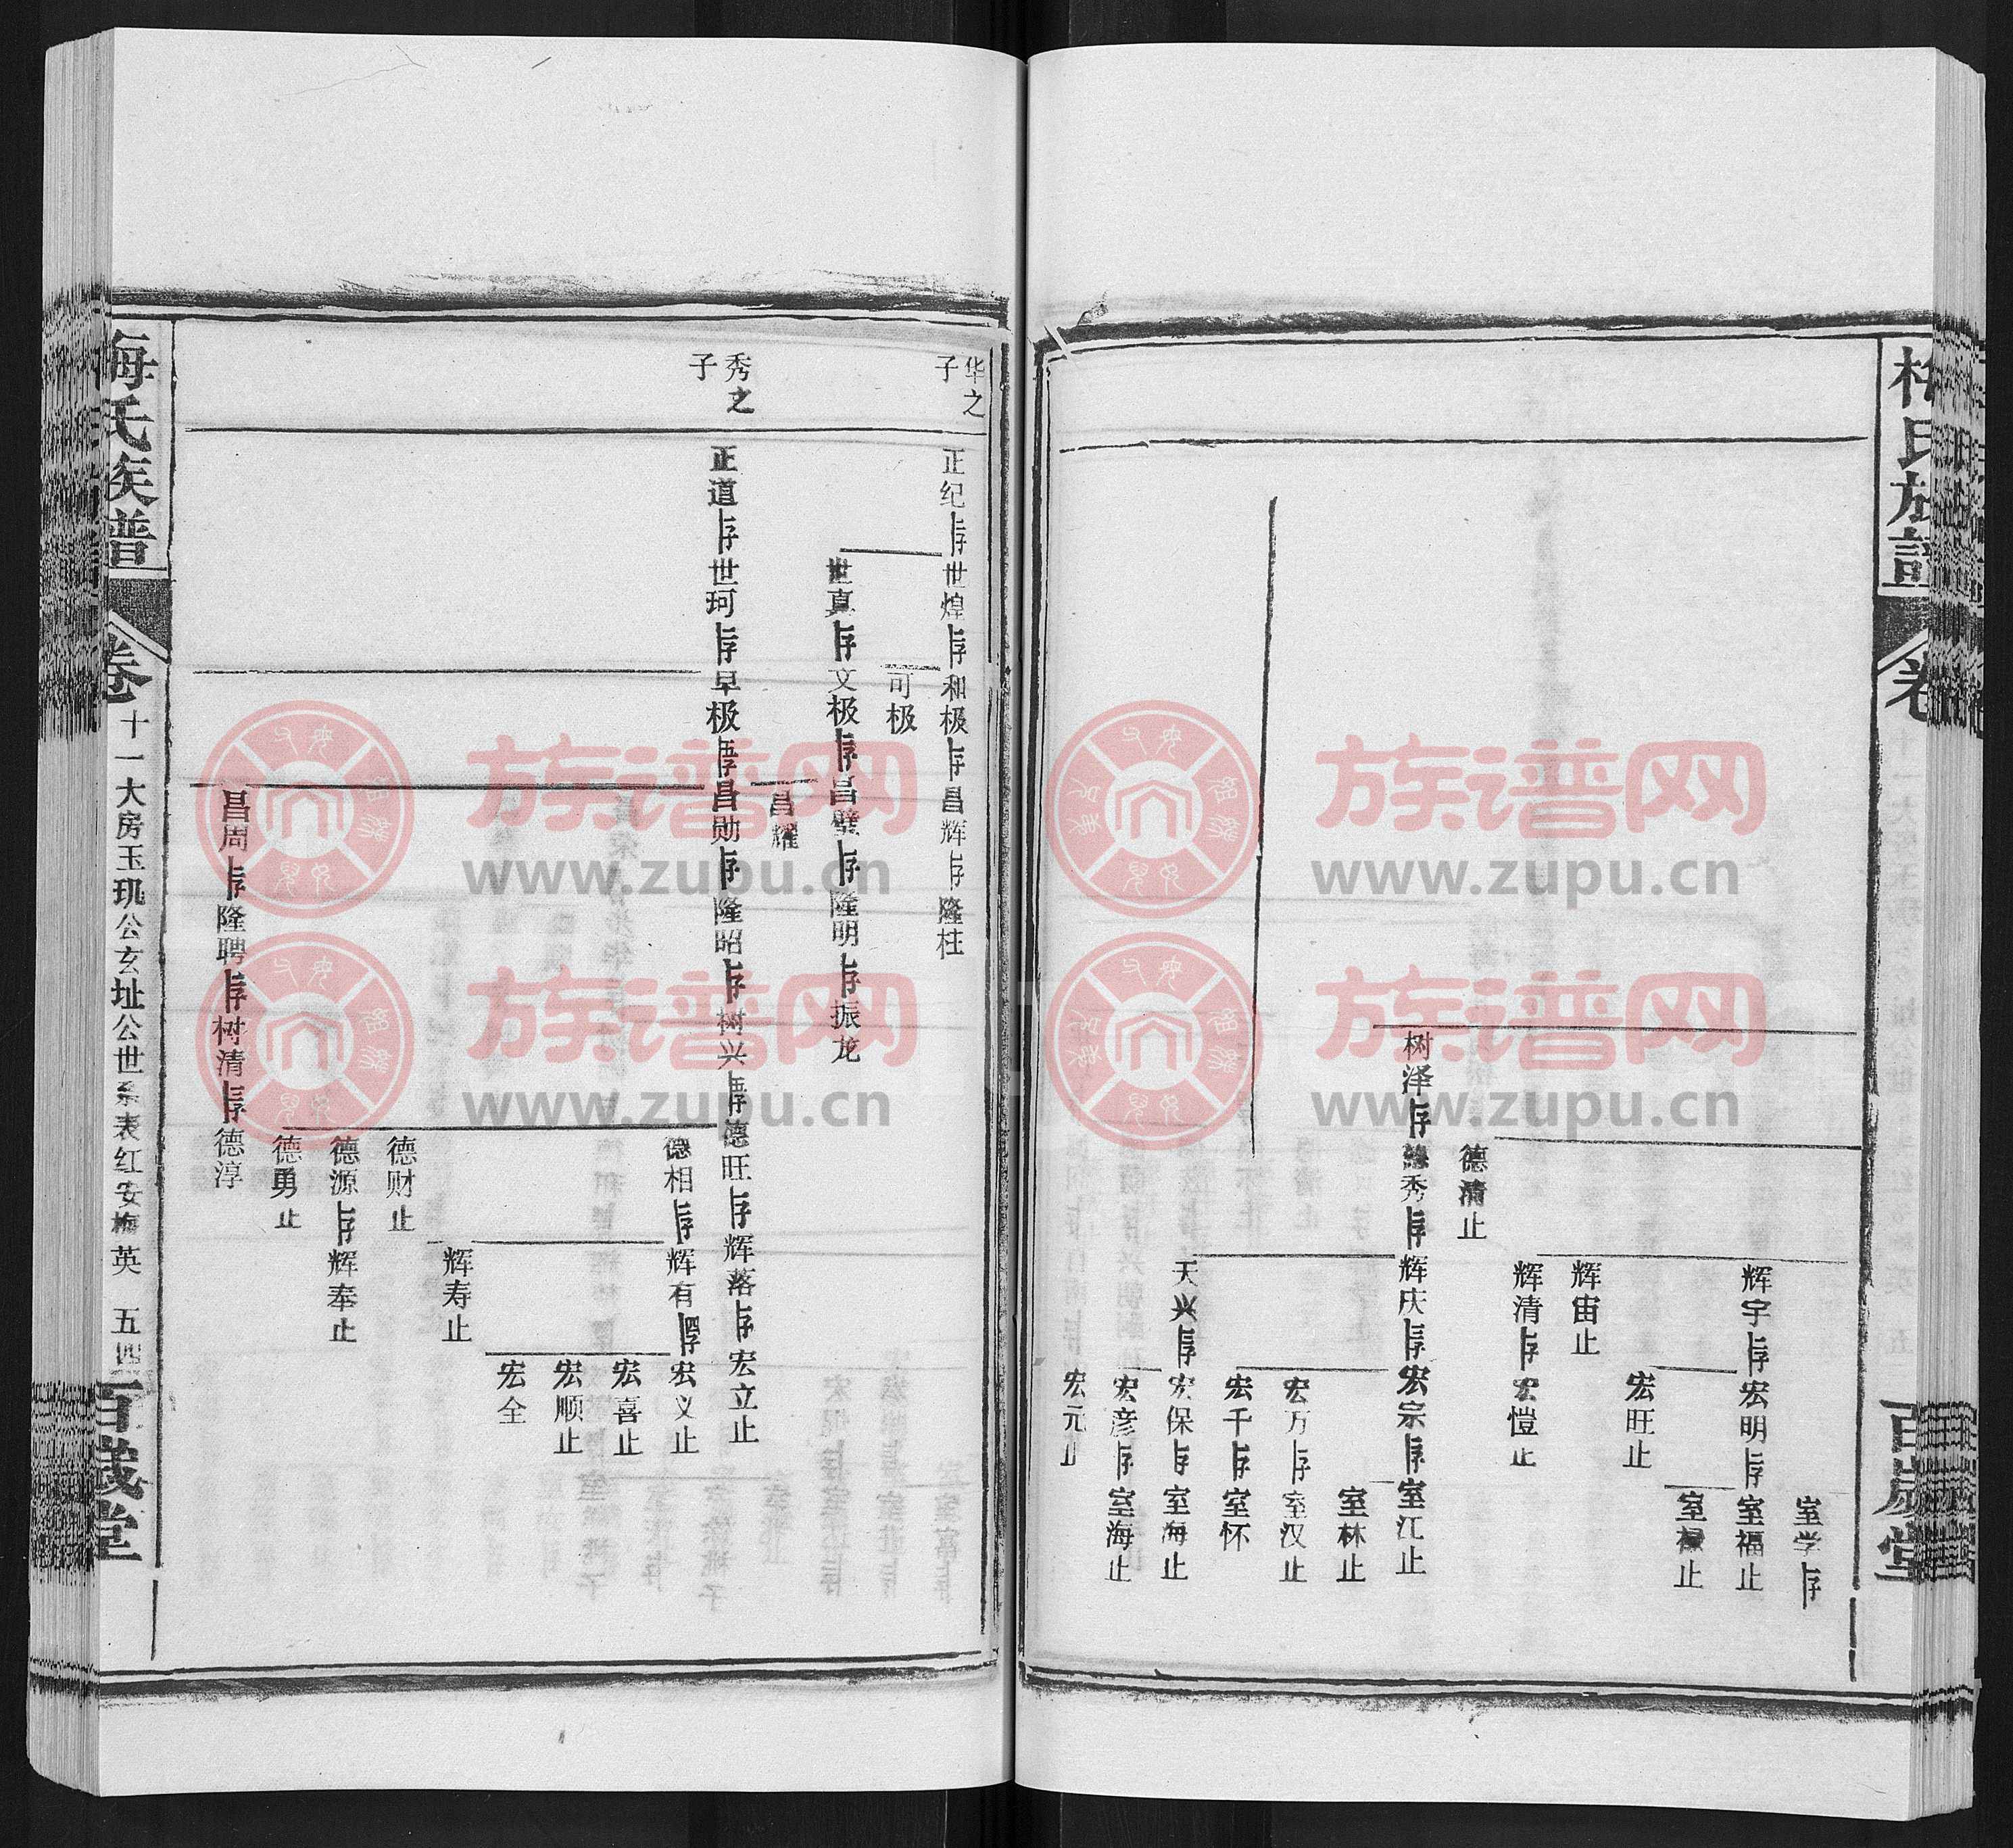 梅氏族谱
卷
百岁堂
室学存
辉宇存宏明存室福止
室禄止
宏旺止
辉宙止
辉清存宏恺止
德清止
树泽存德秀存辉庆存宏宗存室江止
室林止
宏万存室汉止
宏千存室怀
天兴存宏保存室海止
宏彦存室海止
宏元止
华之子
正纪存世煌存和极存昌辉存隆柱
可极
世真存文极存昌璧存隆明存振龙
昌耀
秀之子
正道存世珂存早极存昌勋存隆昭存树兴存德旺存辉落存宏立止
德相存辉有存宏义止
宏喜止
宏顺止
宏全
辉寿止
德财止
德源存辉奉止
德勇止
昌周存隆聘存树清存德淳
梅氏族谱
卷十一大房玉玑公玄址公世系表红安梅英 五四
百岁堂
族谱网
www.zupu.cn
族谱网
www.zupu.cn
族谱网
www.zupu.cn
族谱网
www.zupu.cn